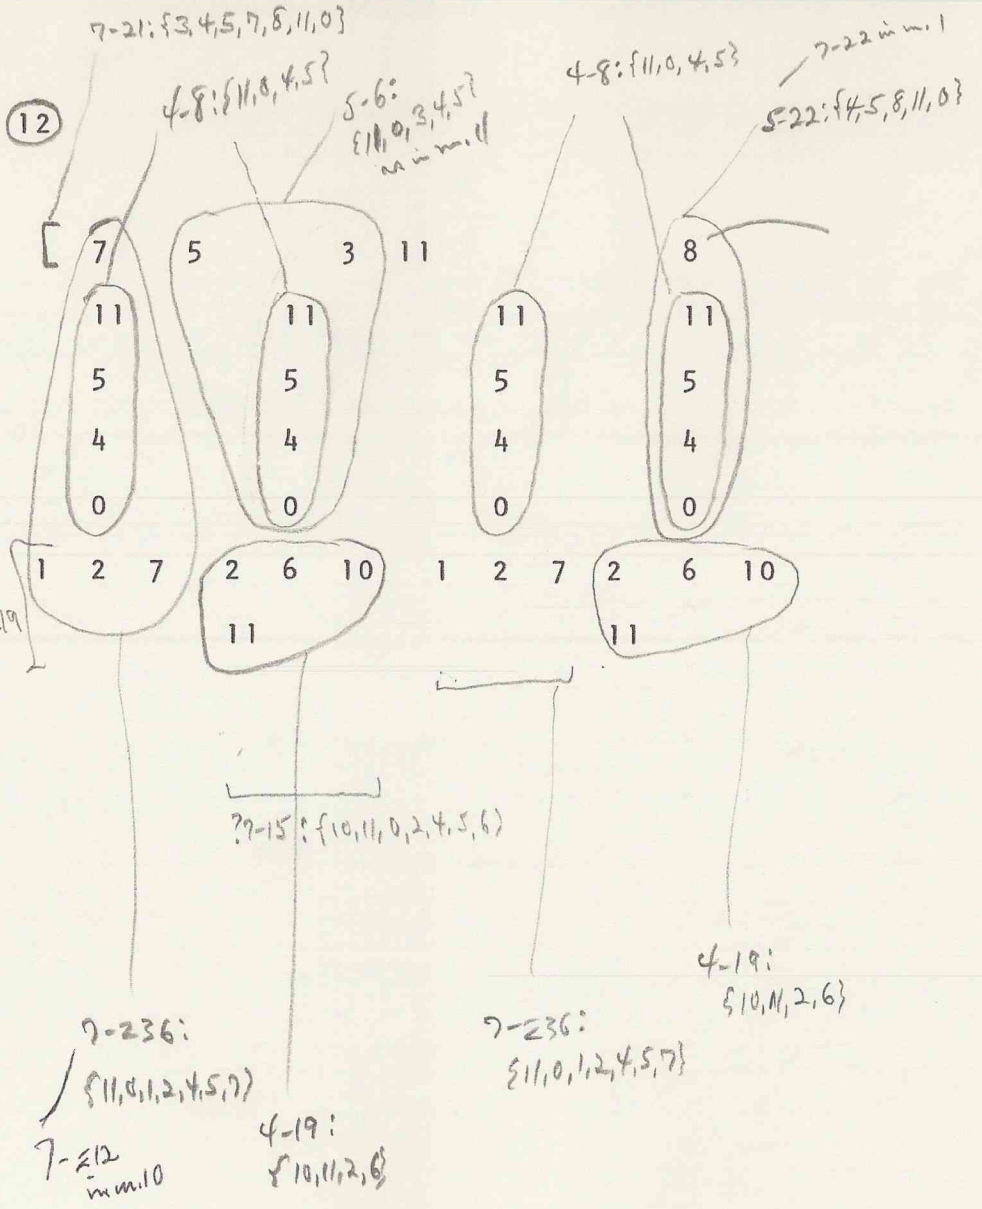 7-21:{3,4,5,7,8,11,0}
4-8:{11,0,4,5}
5-6:
{11,0,3,4,5}
as in m.11
4-8:{11,0,4,5}
7-22 in m.1
5-22:{4,5,8,11,0}
12
7 5 3 11 8
11 11 11 11
5 5 5 5
4 4 4 4
0 0 0 0
1 2 7 2 6 10 1 2 7 2 6 10
19
11 11
?7-15:{10,11,0,2,4,5,6}
4-19:
{10,11,2,6}
7-Z36:
{11,0,1,2,4,5,7}
7-Z36:
{11,0,1,2,4,5,7}
4-19:
{10,11,2,6}
7-Z12
in m.10